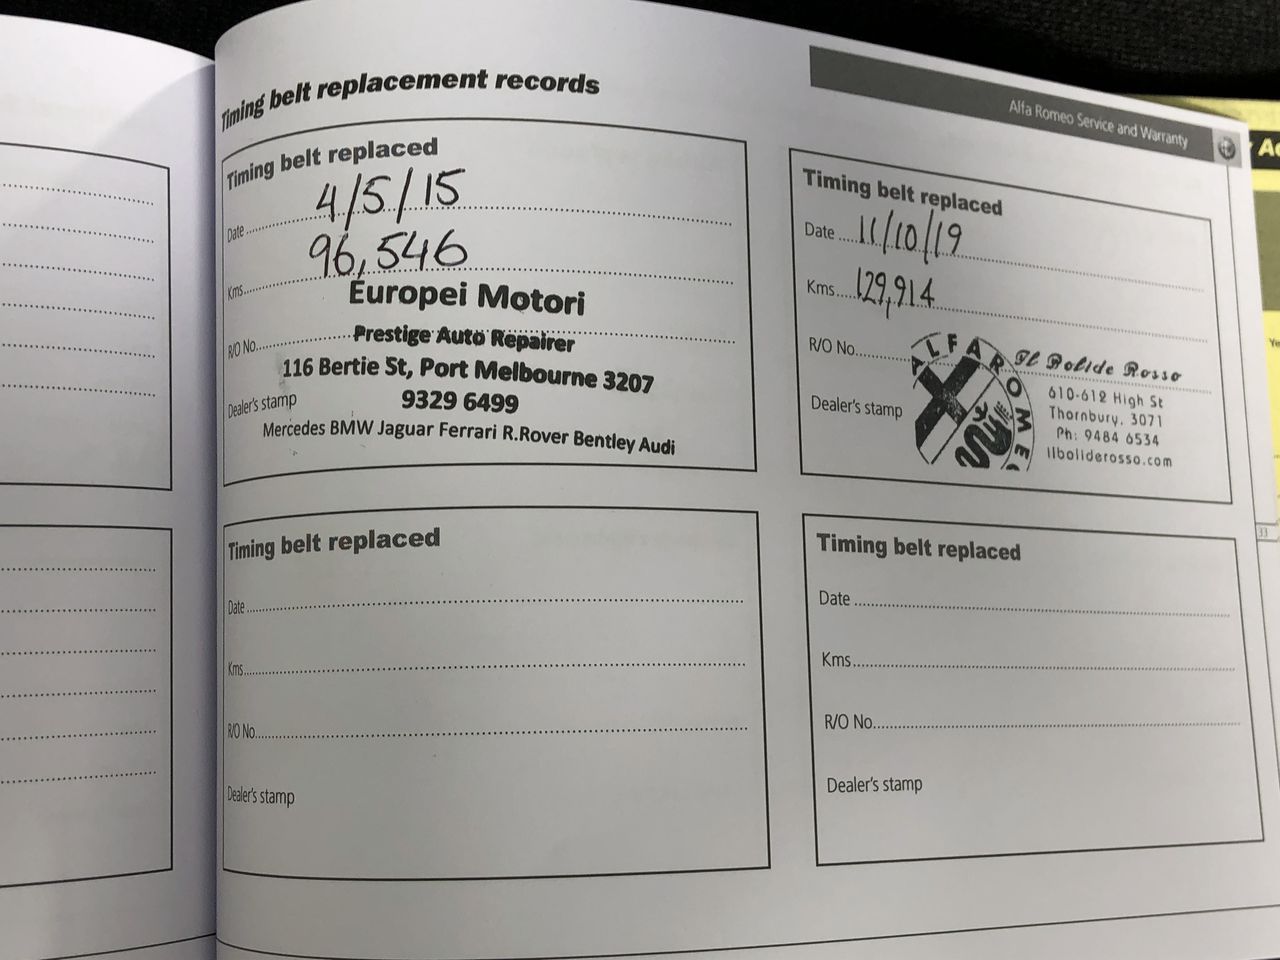 Timing belt replacement records
Alfa Romeo Service and Warranty
Timing belt replaced
Date 4/5/15
Kms 96,546
Europei Motori
R/O No.
Prestige Auto Repairer
116 Bertie St, Port Melbourne 3207
Dealer's stamp
9329 6499
Mercedes BMW Jaguar Ferrari R.Rover Bentley Audi
Timing belt replaced
Date 11/10/19
Kms 129,914
R/O No.
Dealer's stamp
ALFA ROMEO
Il Bolide Rosso
610-612 High St
Thornbury, 3071
Ph: 9484 6534
ilboliderosso.com
Timing belt replaced
Date
Kms
R/O No.
Dealer's stamp
Timing belt replaced
Date
Kms
R/O No.
Dealer's stamp
33